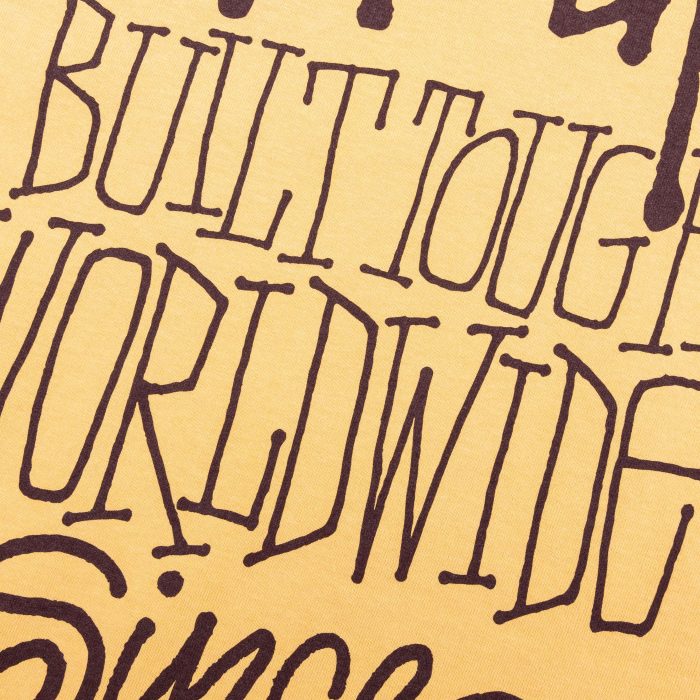 BUILT TOUGH
WORLDWIDE
Since